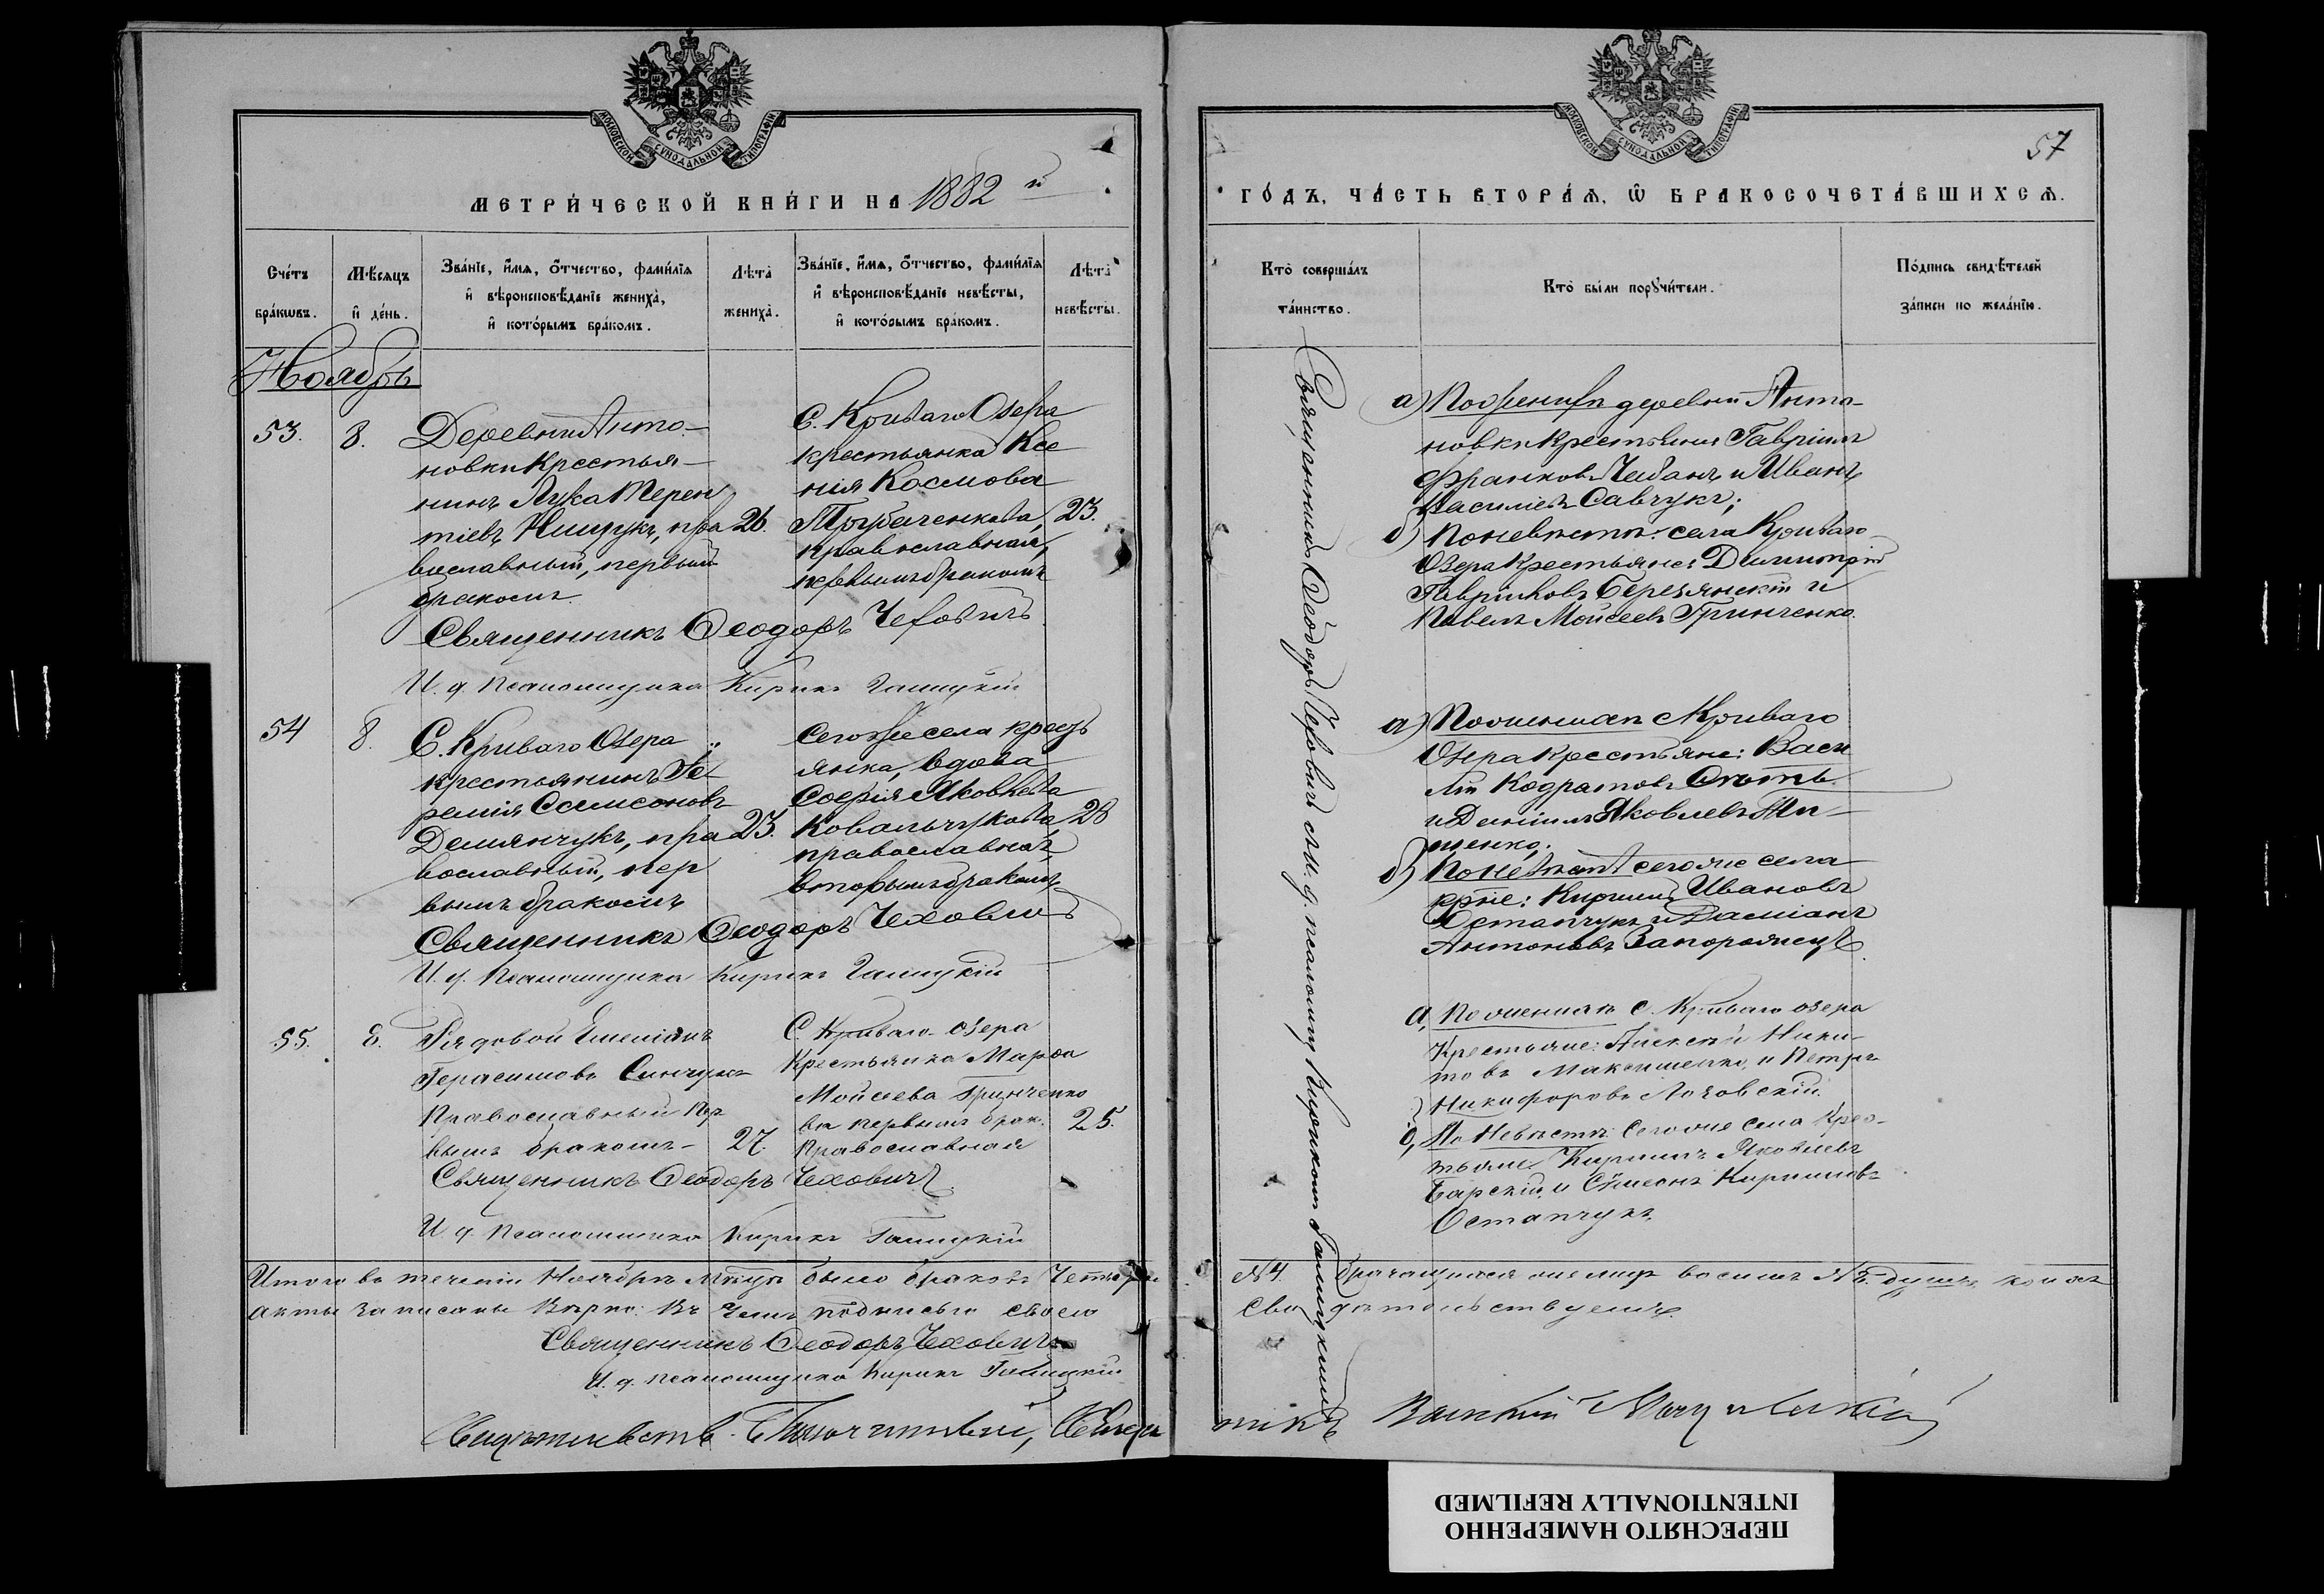 МОСКОВСКОЙ СѴНОДАЛЬНОЙ ТИПОГРАФІИ.
МЕТРИЧЕСКОЙ КНИГИ НА 1882 й
Счетъ браковъ.
Мѣсяцъ и день.
Званіе, имя, отчество, фамилія
и вѣроисповѣданіе жениха,
и которымъ бракомъ.
Лѣта жениха.
Званіе, имя, отчество, фамилія
и вѣроисповѣданіе невѣсты,
и которымъ бракомъ.
Лѣта невѣсты.
Ноябрь
53. 8.
Деревни Анто-
новки Крестья-
нинъ Лука Терен
тіевъ Нищукъ, пра
вославный, первымъ
бракомъ.
26.
С. Криваго Озера
крестьянка Ксе
нія Космова
Трубаченкова,
православная,
первымъ бракомъ
23.
Священникъ Ѳеодоръ Чеховичъ
И. д. Псаломщика Кирикъ Галицкій
54 8.
С. Криваго Озера
крестьянинъ Іе
ремія Самсоновъ
Демянчукъ, пра
вославный, пер
вымъ бракомъ
23.
Сегоже села крест
янка, вдова
Софія Яковлева
Ковальчукова
православная,
вторымъ бракомъ
28
Священникъ Ѳеодоръ Чеховичъ
И. д. Псаломщика Кирикъ Галицкій
55. 8.
Рядовой Емеліанъ
Герасимовъ Синчукъ
Православный Пер
вымъ бракомъ
27.
С. Криваго Озера
Крестьянка Марфа
Мойсеева Гринченко
ва первымъ брак.
Православная
25.
Священникъ Ѳеодоръ Чеховичъ
И. д. Псаломщика Кирикъ Галицкій
Итого въ теченіи Ноября Мѣсяца было браковъ Четыре
акты записаны Вѣрно: Въ чемъ подписью своею
Священникъ Ѳеодоръ Чеховичъ
И. д. псаломщика Кирикъ Галицкій
МОСКОВСКОЙ СѴНОДАЛЬНОЙ ТИПОГРАФІИ.
57
ГОДЪ, ЧАСТЬ ВТОРАЯ, Ѡ БРАКОСОЧЕТАВШИХСЯ.
Кто совершалъ таинство.
Кто были поручители.
Подпись свидѣтелей
записи по желанію.
Священникъ Ѳеодоръ Чеховичъ съ И. д. псаломщ Кирикомъ Галицкимъ
а) По женихѣ деревни Анто-
новки крестьяне Гавріилъ
Франковъ Чабанъ и Иванъ
Василіевъ Савчукъ;
б) По невѣстѣ: села Криваго
Озера Крестьяне: Димитрій
Гавриловъ Березянскій и
Павелъ Мойсеевъ Гринченко.
а) По женихѣ с Криваго
Озера Крестьяне: Васи
лій Кодратовъ
и Даніилъ Яковлевъ Ти-
щенко;
б) По невѣстѣ сегоже села
крне: Кириллъ Ивановъ
Остапчукъ и Даміанъ
Антоновъ Запорожецъ.
а, По женихѣ с. Криваго озера
Крестьяне: Алексѣй Ники-
товъ Максименко, и Петръ
Никифоровъ Лозовскій.
б, По Невѣстѣ: Сегоже села Крес-
тьяне Кириллъ Яковлевъ
Барскій, и Симеонъ Кирилловъ
Остапчукъ.
№ 4. брачащихся
свидѣтельствуемъ.
ПЕРЕСНЯТО НАМЕРЕННО
INTENTIONALLY REFILMED